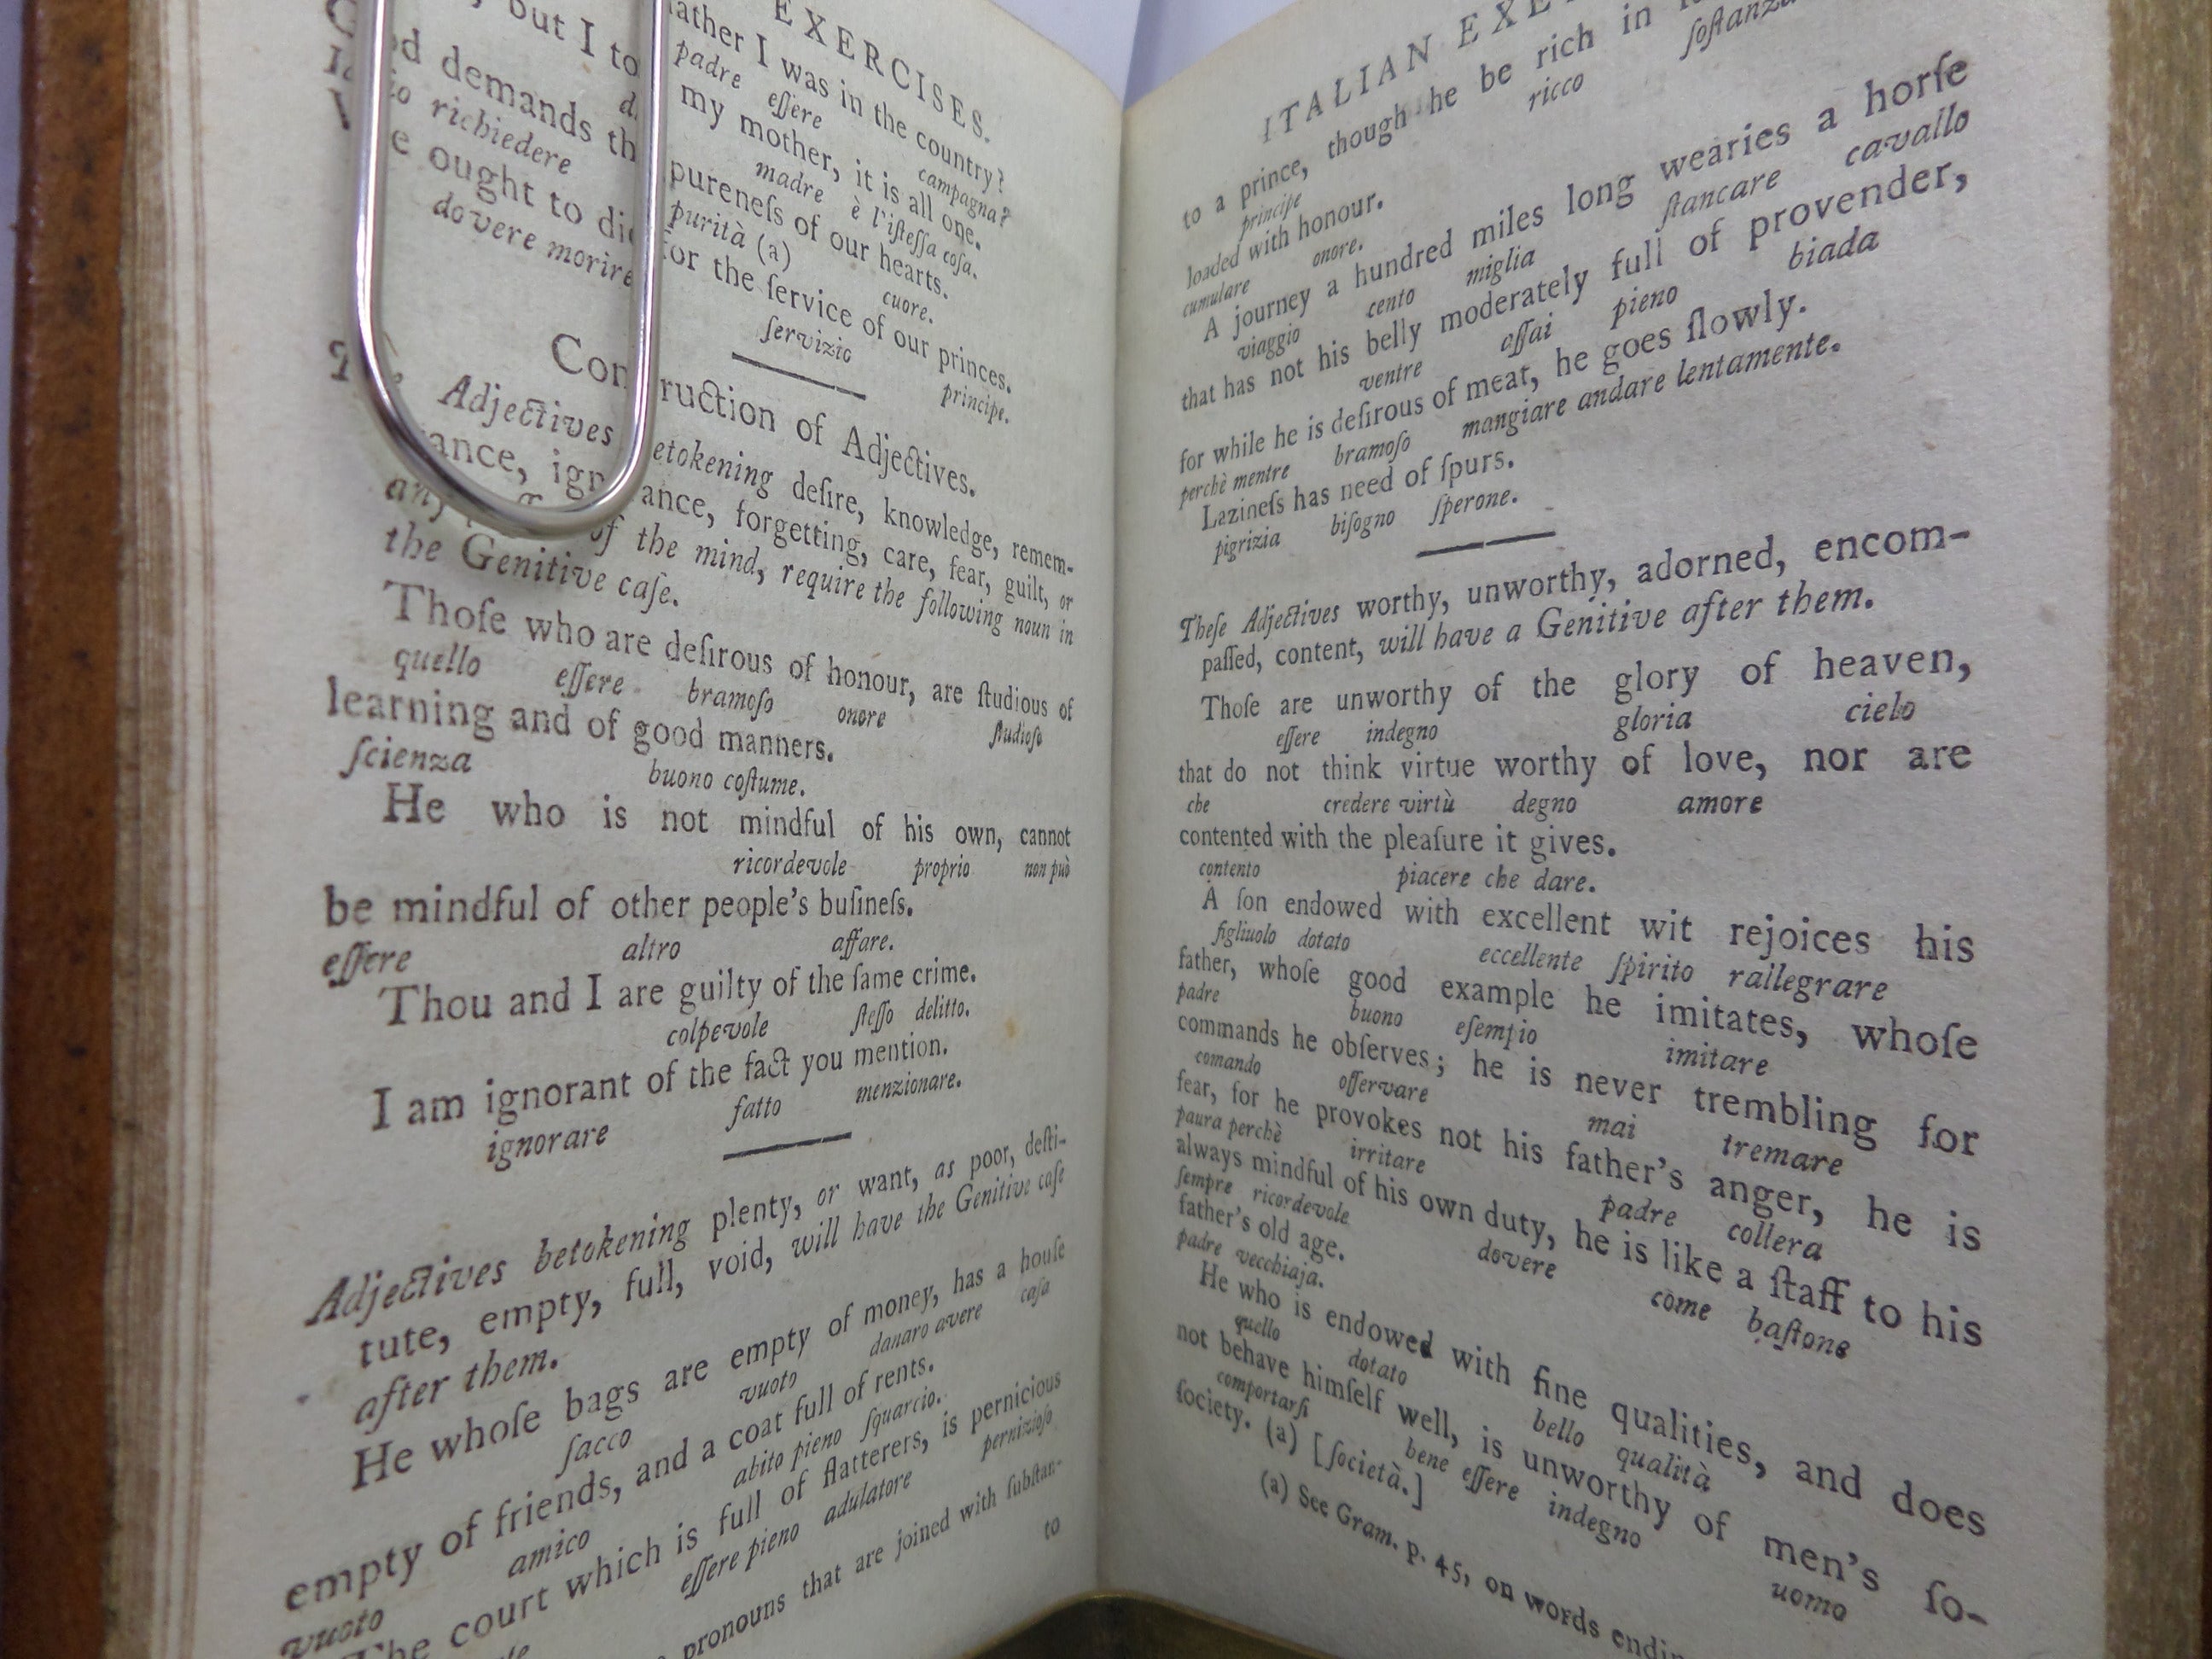 EXERCISES.
but I to
father I was in the country?
padre eſſere campagna?
d demands th
my mother, it is all one.
richiedere
madre è l'iſteſſa coſa.
ought to di
pureneſs of our hearts.
dovere morire
purità (a) cuore.
for the ſervice of our princes.
ſervizio principe.
Con ruction of Adjectives.
Adjectives etokening deſire, knowledge, remem-
ance, ign ance, forgetting, care, fear, guilt, or
of the mind, require the following noun in
the Genitive caſe.
Thoſe who are deſirous of honour, are ſtudious of
quello eſſere bramoſo onore ſtudioſo
learning and of good manners.
ſcienza buono coſtume.
He who is not mindful of his own, cannot
ricordevole proprio non può
be mindful of other people's buſineſs.
eſſere altro affare.
Thou and I are guilty of the ſame crime.
colpevole ſteſſo delitto.
I am ignorant of the fact you mention.
ignorare fatto menzionare.
Adjectives betokening plenty, or want, as poor, deſti-
tute, empty, full, void, will have the Genitive caſe
after them.
He whoſe bags are empty of money, has a houſe
ſacco vuoto danaro avere caſa
empty of friends, and a coat full of rents.
vuoto amico abito pieno ſquarcio.
The court which is full of flatterers, is pernicious
eſſere pieno adulatore pernizioſo
pronouns that are joined with ſubſtan-
to
ITALIAN EXE
to a prince, though he be rich in
principe ricco ſoſtanza
loaded with honour.
cumulare onore.
A journey a hundred miles long wearies a horſe
viaggio cento miglia ſtancare cavallo
that has not his belly moderately full of provender,
ventre aſſai pieno biada
for while he is deſirous of meat, he goes ſlowly.
perchè mentre bramoſo mangiare andare lentamente.
Lazineſs has need of ſpurs.
pigrizia biſogno ſperone.
Theſe Adjectives worthy, unworthy, adorned, encom-
paſſed, content, will have a Genitive after them.
Thoſe are unworthy of the glory of heaven,
eſſere indegno gloria cielo
that do not think virtue worthy of love, nor are
che credere virtù degno amore
contented with the pleaſure it gives.
contento piacere che dare.
A ſon endowed with excellent wit rejoices his
figliuolo dotato eccellente ſpirito rallegrare
father, whoſe good example he imitates, whoſe
padre buono eſempio imitare
commands he obſerves; he is never trembling for
comando oſſervare mai tremare
fear, for he provokes not his father's anger, he is
paura perchè irritare padre collera
always mindful of his own duty, he is like a ſtaff to his
ſempre ricordevole dovere come baſtone
father's old age.
padre vecchiaja.
He who is endowed with fine qualities, and does
quello dotato bello qualità
not behave himſelf well, is unworthy of men's ſo-
comportarſi bene eſſere indegno uomo
ſociety. (a) [ſocietà.]
(a) See Gram. p. 45, on words endin